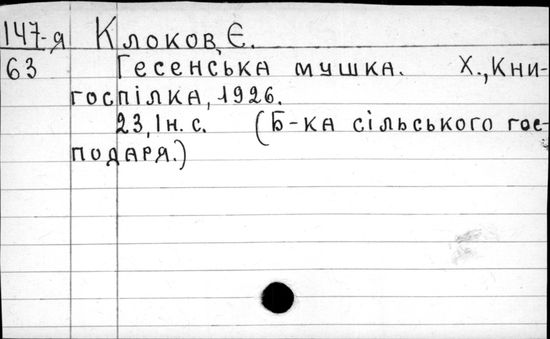 147-я Клоков, Є.
63 Гесенська мушка. Х., Кни-
госпілка, 1926.
23, Iн. с. (Б-ка сільського гос-
подаря.)